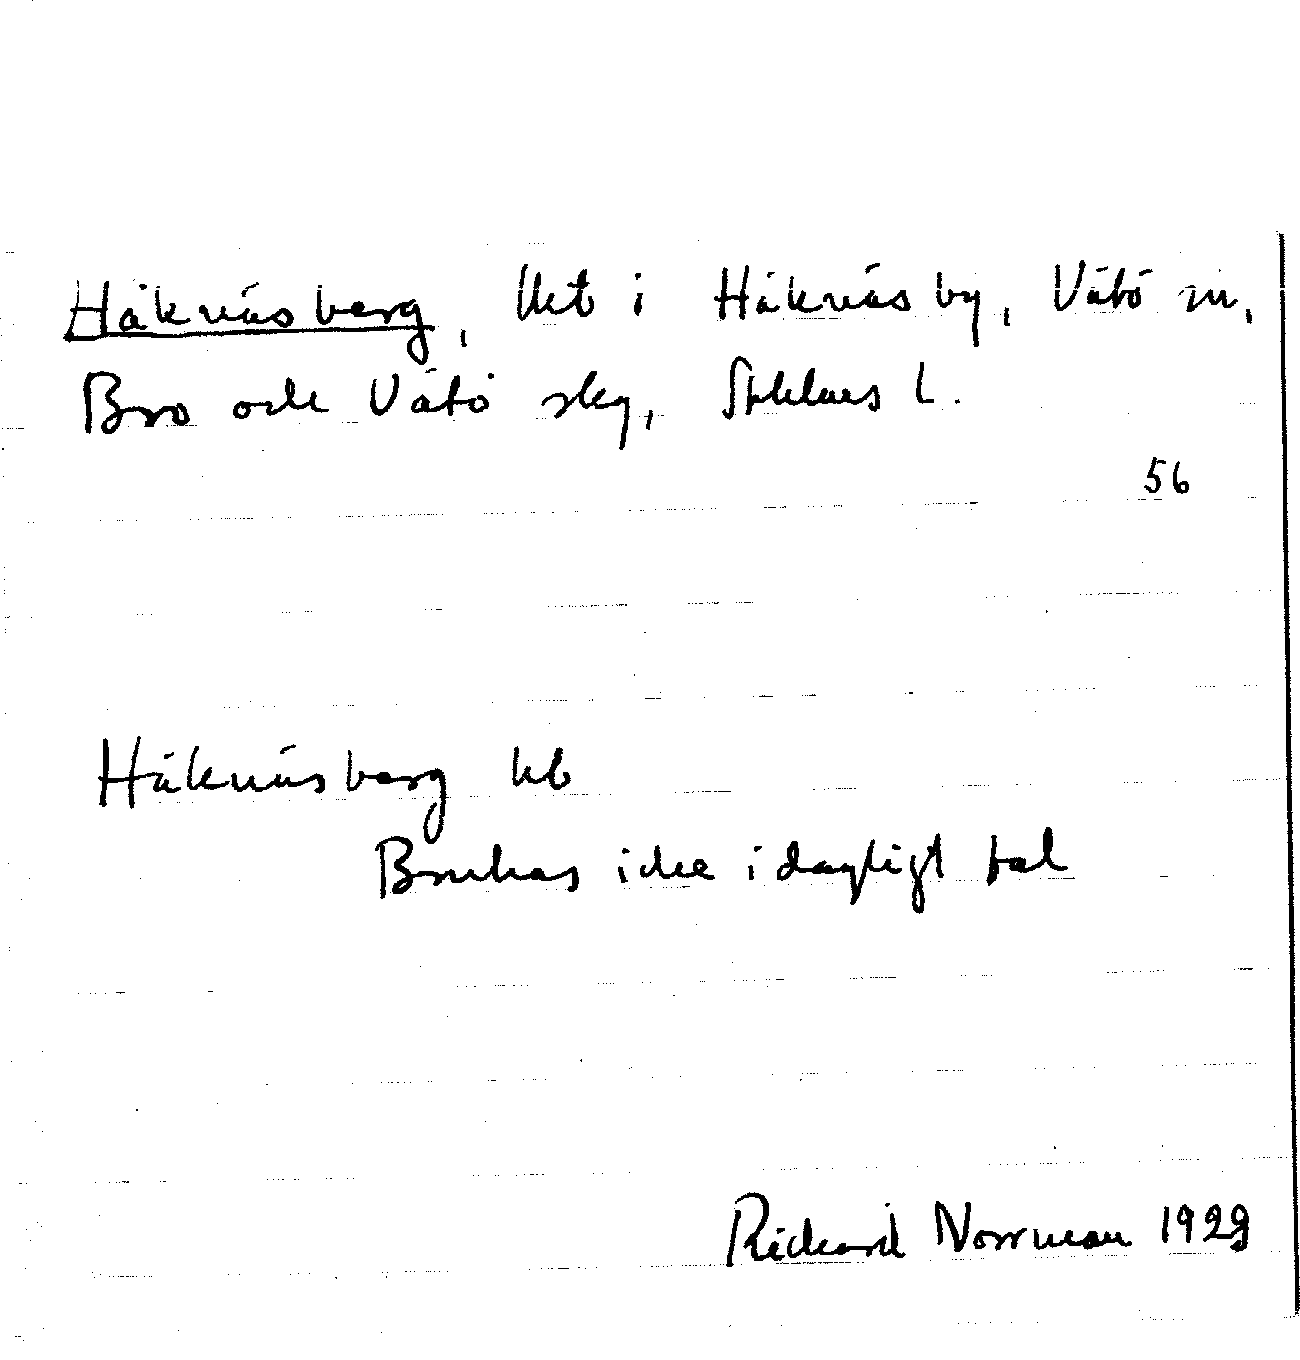 Håknäsberg, lht i Håknäs by, Vätö sn,
Bro och Vätö skg, Sthlms l.
56
Håknäsberg lht
Brukas icke i dagligt tal
Rickard Norrman 1929